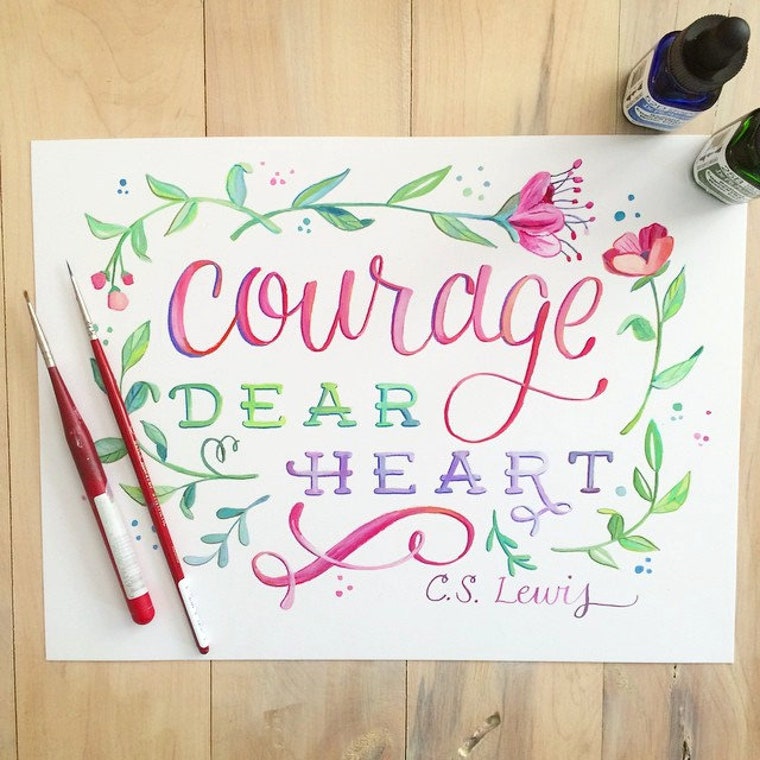 Courage
DEAR
HEART
C.S. Lewis